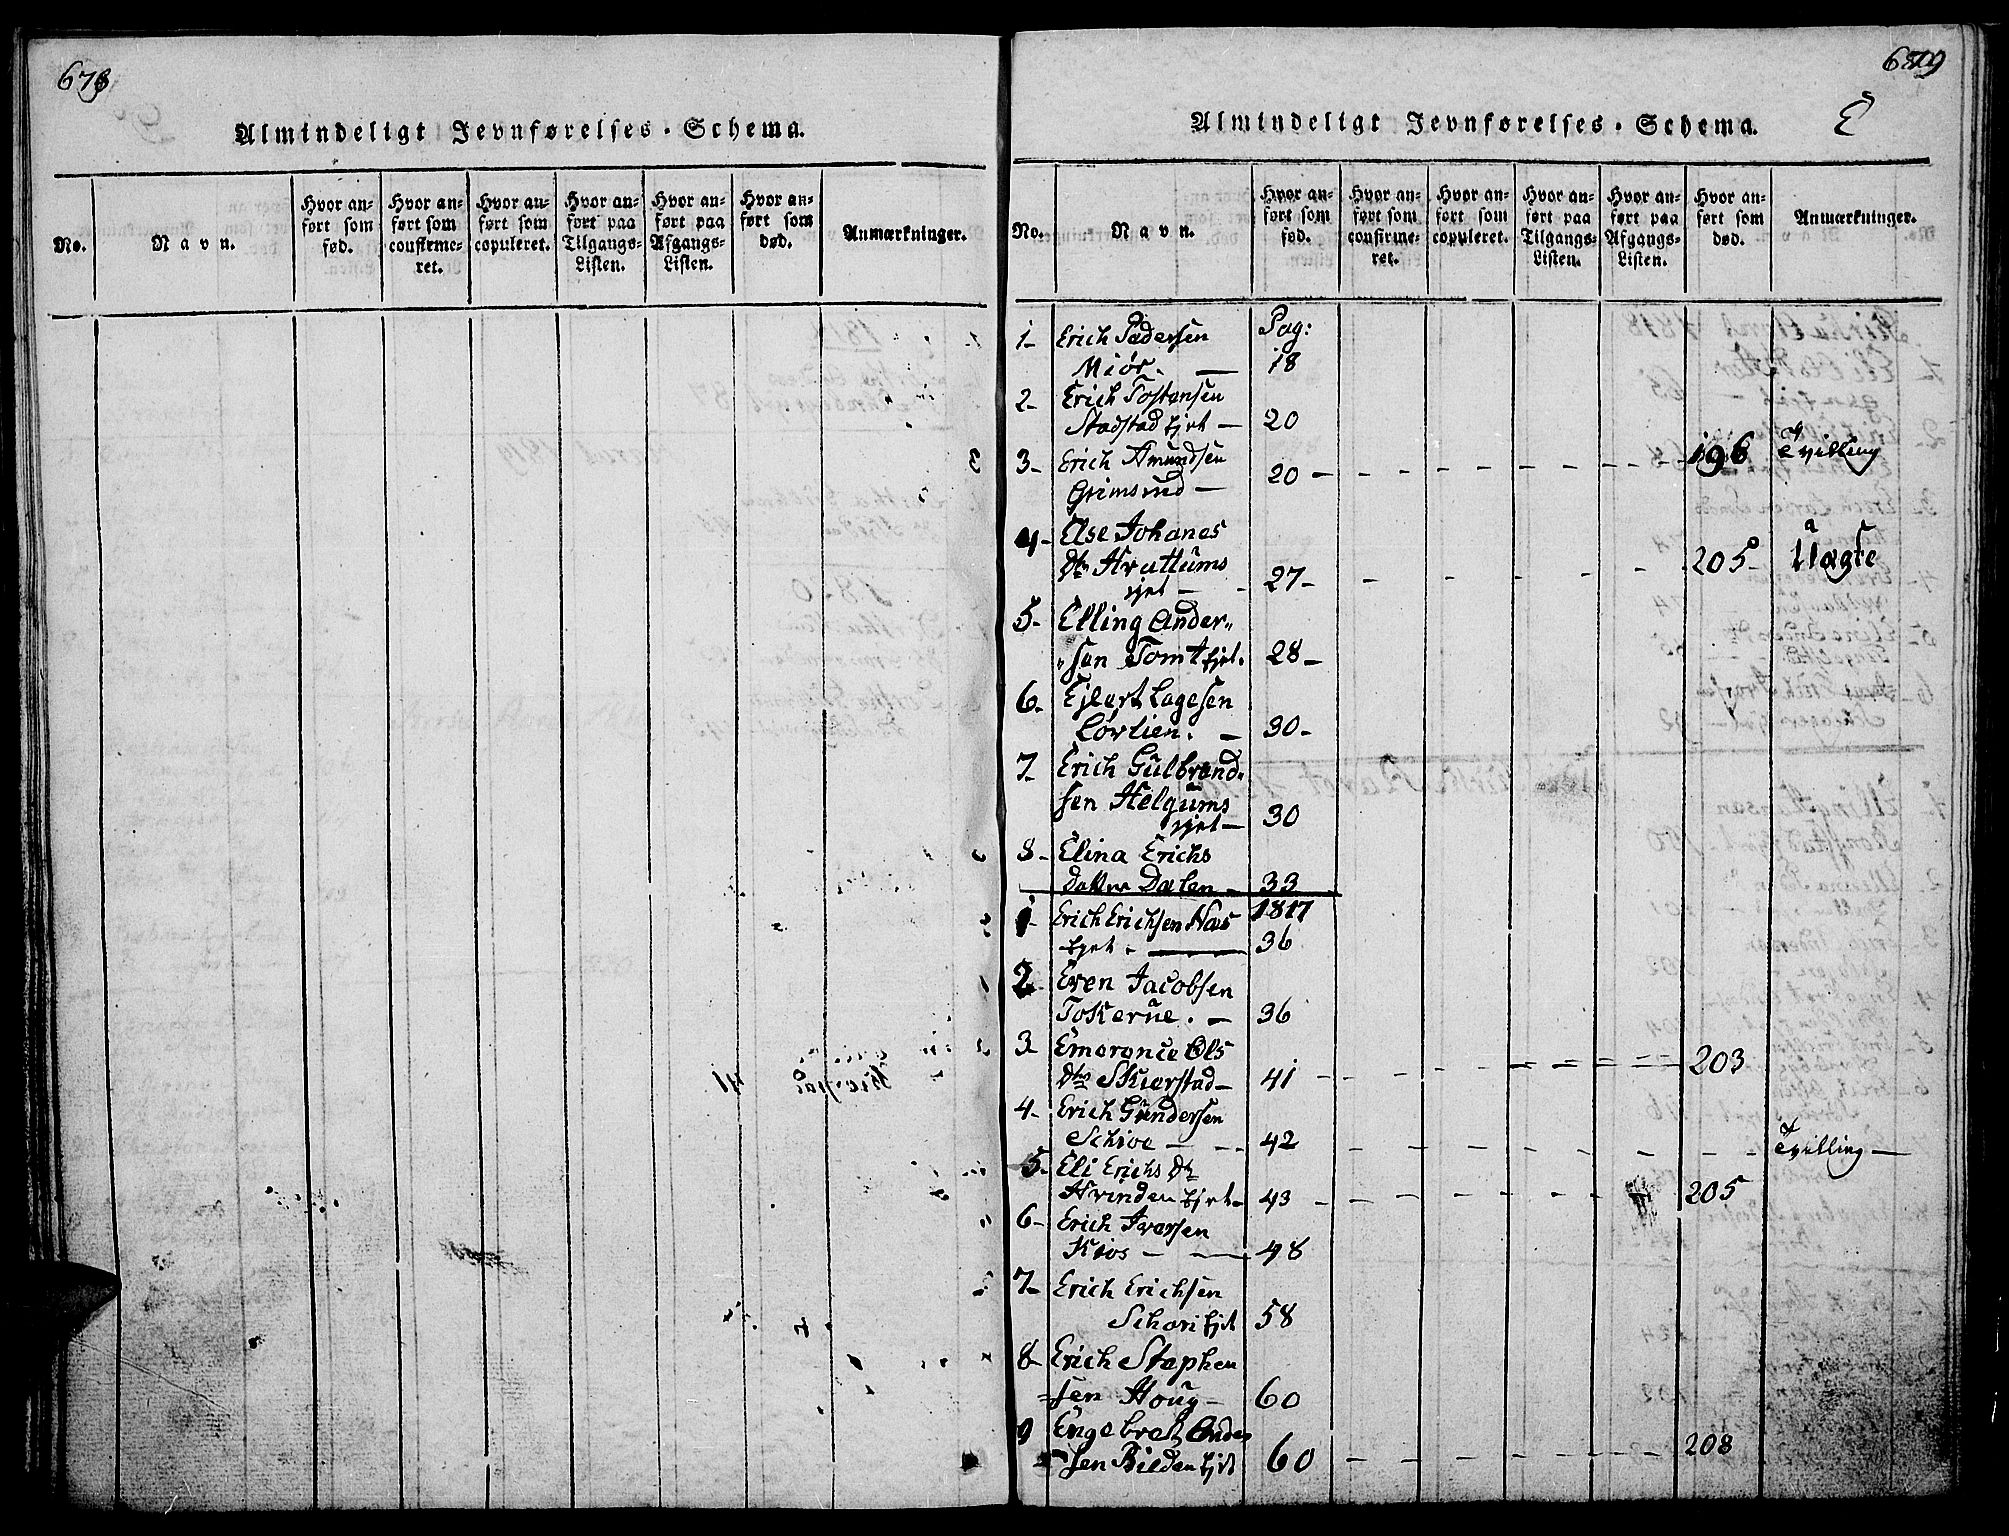 678
Almindeligt Jevnførelses-Schema.
No.
Navn.
Hvor an-
ført som
fød.
Hvor an-
ført som
confirme-
ret.
Hvor an-
ført som
copuleret.
Hvor an-
ført paa
Tilgangs-
Listen.
Hvor an-
ført paa
Afgangs-
Listen.
Hvor an-
ført som
død.
Anmærkninger.
679
E
Almindeligt Jevnførelses-Schema.
No.
Navn.
Hvor an-
ført som
fød.
Hvor an-
ført som
confirme-
ret.
Hvor an-
ført som
copuleret.
Hvor an-
ført paa
Tilgangs-
Listen.
Hvor an-
ført paa
Afgangs-
Listen.
Hvor an-
ført som
død.
Anmærkninger.
1- Erich Pedersen Pag:
Miør. — 18
2- Erich Tostensen
Stadstad Ejet — 20
3- Erich Amundsen 196 Tvilling
Grimsrud — 20 —
4- Else Johanes
Dtr Hvattums 205- Uægte
ejet — 27-
5- Elling Ander„
„sen Tomt Ejet. 28-
6- Ejlert Lagesen
Lørlien. — 30-
7- Erich Gulbrand„
sen Helgums
ejet — 30
8- Elina Erichs
datter Dalen — 33
1- Erich Erichsen Næs 1817
Ejet. — 36
2- Even Jacobsen
Tokerue. — 36
3- Emerence Ols 203
Dtr Skierstad — 41
4- Erich Gundersen
Schive — 42 Tvilling —
5- Eli Erichs Dtr
Hvinden Ejet — 43 205
6- Erich Iversen
Kios — 48
7- Erich Erichsen
Schari Ejet 58
8- Erich Stephen
=sen Houg — 60
9 Engebret Ander
=sen Bilden Ejet 60 208